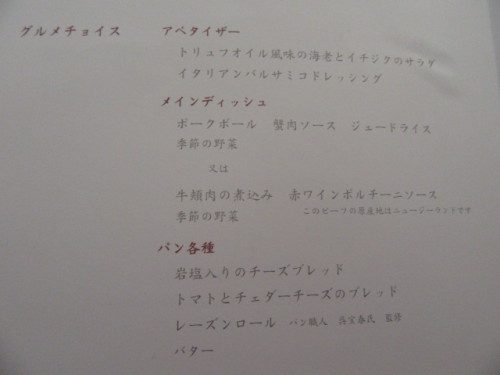 グルメチョイス
アペタイザー
トリュフオイル風味の海老とイチジクのサラダ
イタリアンバルサミコドレッシング
メインディッシュ
ポークボール 蟹肉ソース ジュードライス
季節の野菜
又は
牛頬肉の煮込み 赤ワインポルチーニソース
季節の野菜 このビーフの原産地はニュージーランドです
パン各種
岩塩入りのチーズブレッド
トマトとチェダーチーズのブレッド
レーズンロール パン職人 呉宝春氏 監修
バター